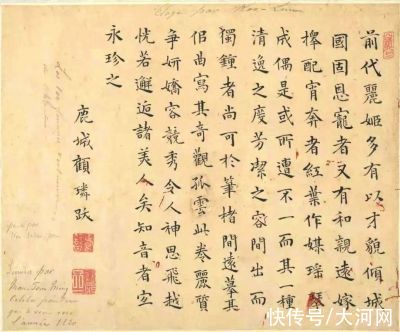 前代麗姬多有以才貌傾城
國固恩寵者又有和親遠嫁
擇配宵奔者紅葉作媒瑤琴
成偶是或所遭不一而其一種
清逸之度芳潔之容間出而
獨鍾者尚可於筆楮間遠摹其
佀曲寫其奇觀孤雲此卷麗質
爭妍嬌容競秀令人神思飛越
恍若邂逅諸美人矣知音者宜
永珍之
鹿城顧璘跋
快传号/大河网